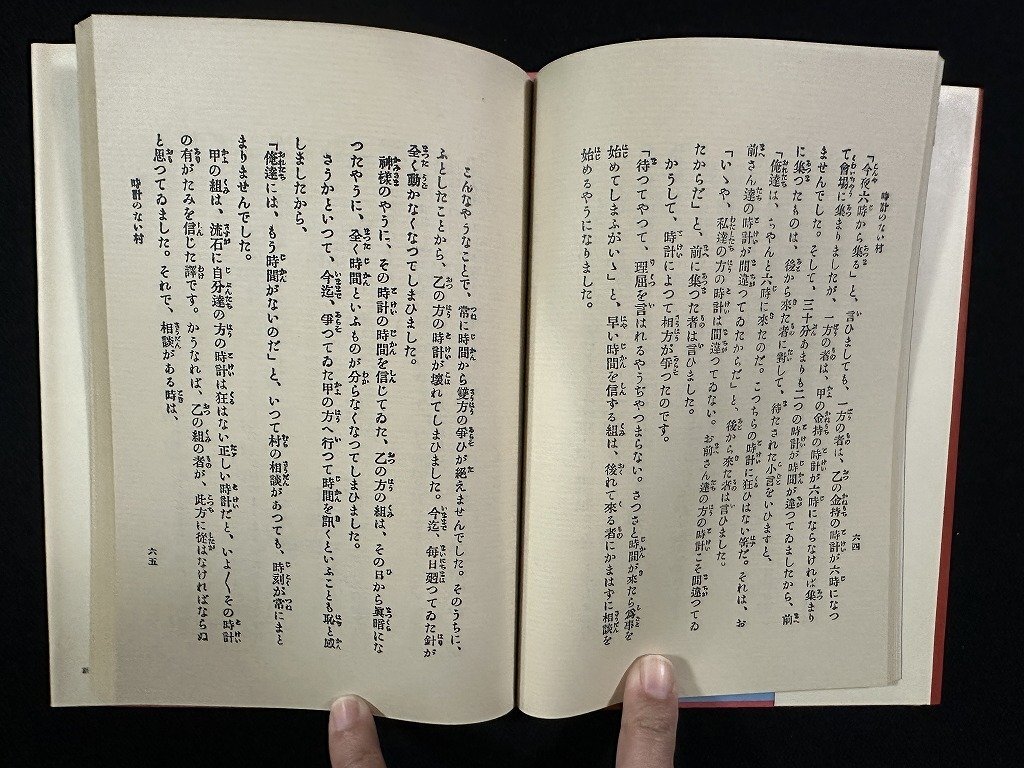 時計のない村
六四
「今夜六時から集る」と、言ひましても、一方の者は、乙の金持の時計が六時になつ
て會場に集まりましたが、一方の者は、甲の金持の時計が六時にならなければ集まり
ませんでした。そして、三十分あまりも二つの時計が時間が違つてゐましたから、前
に集つたものは、後から來た者に對して、待たされた小言をいひますと、
「俺達は、ちやんと六時に來たのだ。こつちらの時計に狂ひはない筈だ。それは、お
前さん達の時計が間違つてゐたからだ」と、後から來た者は言ひました。
「いゝや、私達の方の時計は間違つてゐない。お前さん達の方の時計こそ間違つてゐ
たからだ」と、前に集つた者は言ひました。
かうして、時計によつて相方が爭つたのです。
「待つてやつて、理屈を言はれるやうぢやつまらない。さつさと時間が來たら爲事を
始めてしまふがいゝ」と、早い時間を信する組は、後れて來る者にかまはずに相談を
始めるやうになりました。
こんなやうなことで、常に時間から雙方の爭ひが絕えませんでした。そのうちに、
ふとしたことから、乙の方の時計が壊れてしまひました。今迄、毎日廻つてゐた針が
全く動かなくなつてしまひました。
神樣のやうに、その時計の時間を信じてゐた、乙の方の組は、その日から眞暗にな
つたやうに、全く時間といふものが分らなくなつてしまひました。
さうかといつて、今迄、爭つてゐた甲の方へ行つて時間を訊くといふことも恥と感
しましたから、
「俺達には、もう時間がないのだ」と、いつて村の相談があつても、時刻が常にまと
まりませんでした。
甲の組は、流石に自分達の方の時計は狂はない正しい時計だと、いよ〳〵その時計
の有がたみを信じた譯です。かうなれば、乙の組の者が、此方に從はなければならぬ
と思つてゐました。それで、相談がある時は、
時計のない村
六五